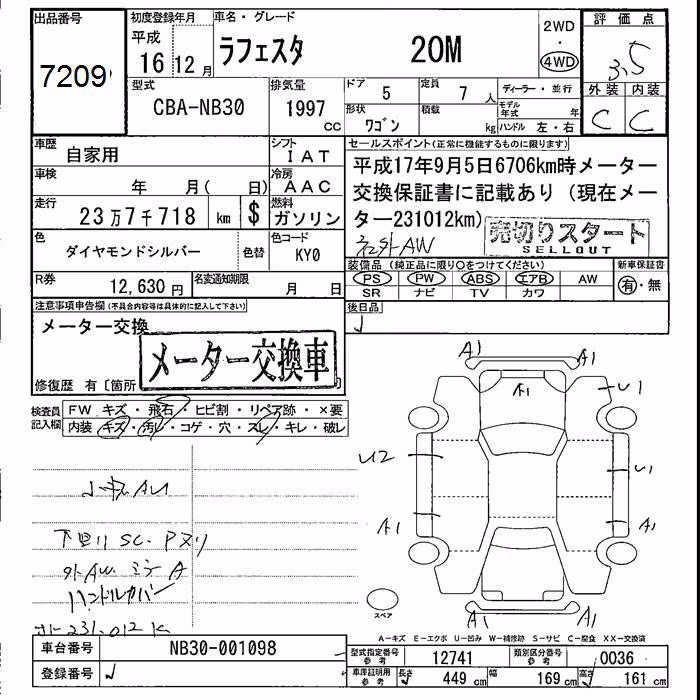 出品番号
7209
初度登録年月
平成
16 12 月
車名・グレード
ラフェスタ 20M
2WD
・
4WD
評価点
3.5
外装 内装
C C
型式
CBA-NB30
排気量
1997
CC
ドア
5
定員
7 人
ディーラー・並行
形状
ワゴン
積載
kg
モデル年式 年
ハンドル 左・右
車歴
自家用
シフト
IAT
車検
年 月( 日)
冷房
AAC
走行
23万7千718 km $
燃料
ガソリン
色
ダイヤモンドシルバー
色替
色コード
KY0
R券
12,630 円
名変通知期限
月 日
セールスポイント(正常に機能するものに限ります)
平成17年9月5日6706km時メーター
交換保証書に記載あり(現在メー
ター231012km)
社外AW
売切りスタート
SELLOUT
装備品(純正品に限り○をつけてください)
PS PW ABS エアB AW
SR ナビ TV カワ
新車保証書
有・無
後日品
注意事項申告欄(不具合内容等は具体的に記入して下さい)
メーター交換
メーター交換車
修復歴 有〔箇所
検査員
記入欄
FW キズ・飛石・ヒビ割・リペア跡・×要
内装 キズ・汚レ・コゲ・穴・スレ・キレ・破レ
A1 A1
A1
U1
U2
U1
A1
A1
A1 A1
スペア
下廻り SC. Pヌリ
外AW ミラーA
ハンドルカバー
231.012K
A-キズ E-エクボ U-凹み W-補修跡 S-サビ C-腐食 XX-交換済
車台番号
NB30-001098
登録番号
型式指定番号
参考
12741
類別区分番号
参考
0036
車庫証明用
参考
長さ 449 cm
幅 169 cm
高さ 161 cm